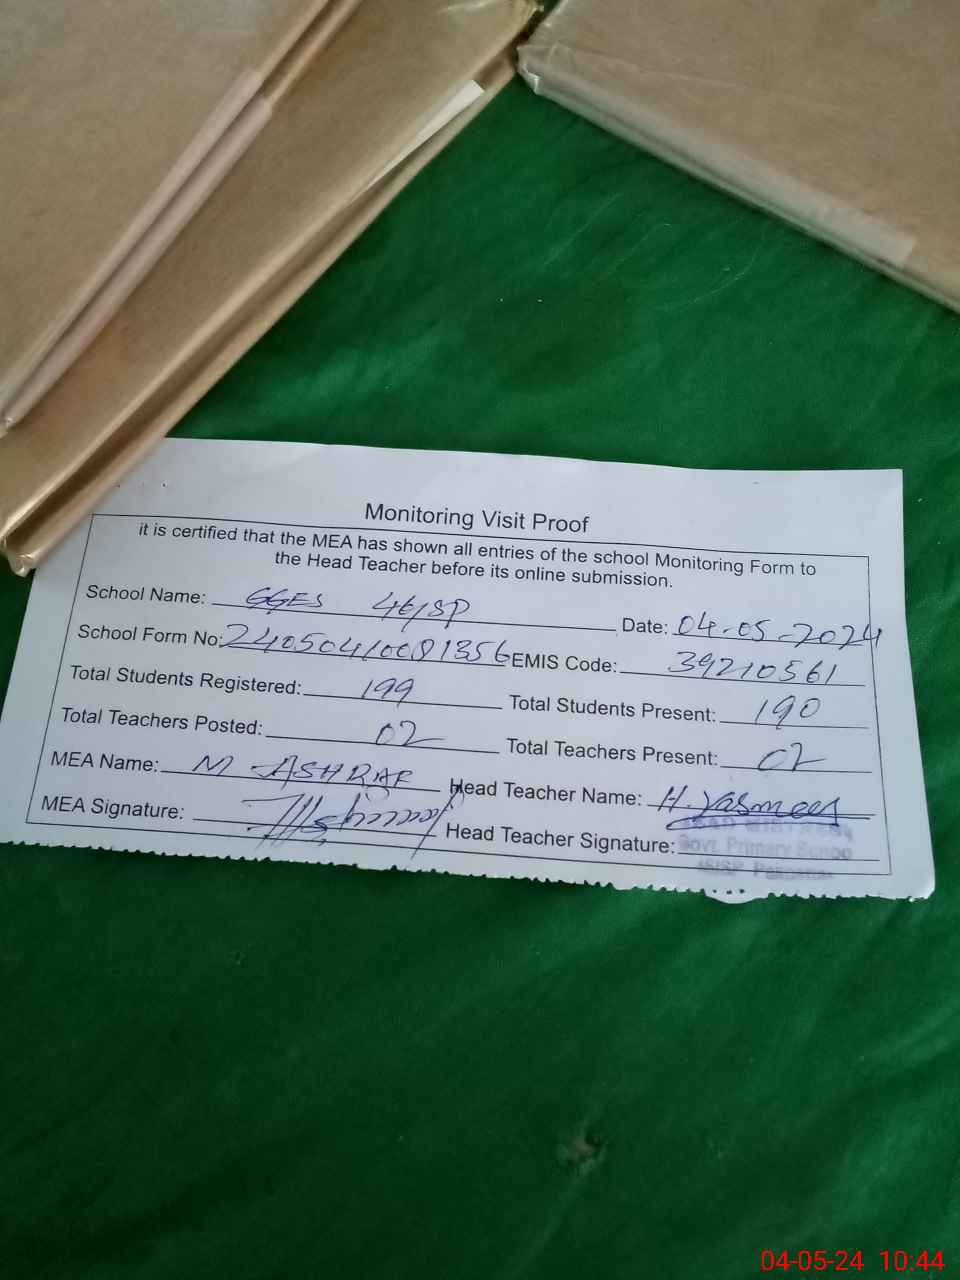 Monitoring Visit Proof
it is certified that the MEA has shown all entries of the school Monitoring Form to
the Head Teacher before its online submission.
School Name: GGES 46/SP Date: 04-05-2024
School Form No: 24050410081356 EMIS Code: 39210561
Total Students Registered: 199 Total Students Present: 190
Total Teachers Posted: 02 Total Teachers Present: 02
MEA Name: M ASHRAF Head Teacher Name: H. Yasmeen
MEA Signature: Head Teacher Signature:
Govt. Primary
04-05-24 10:44